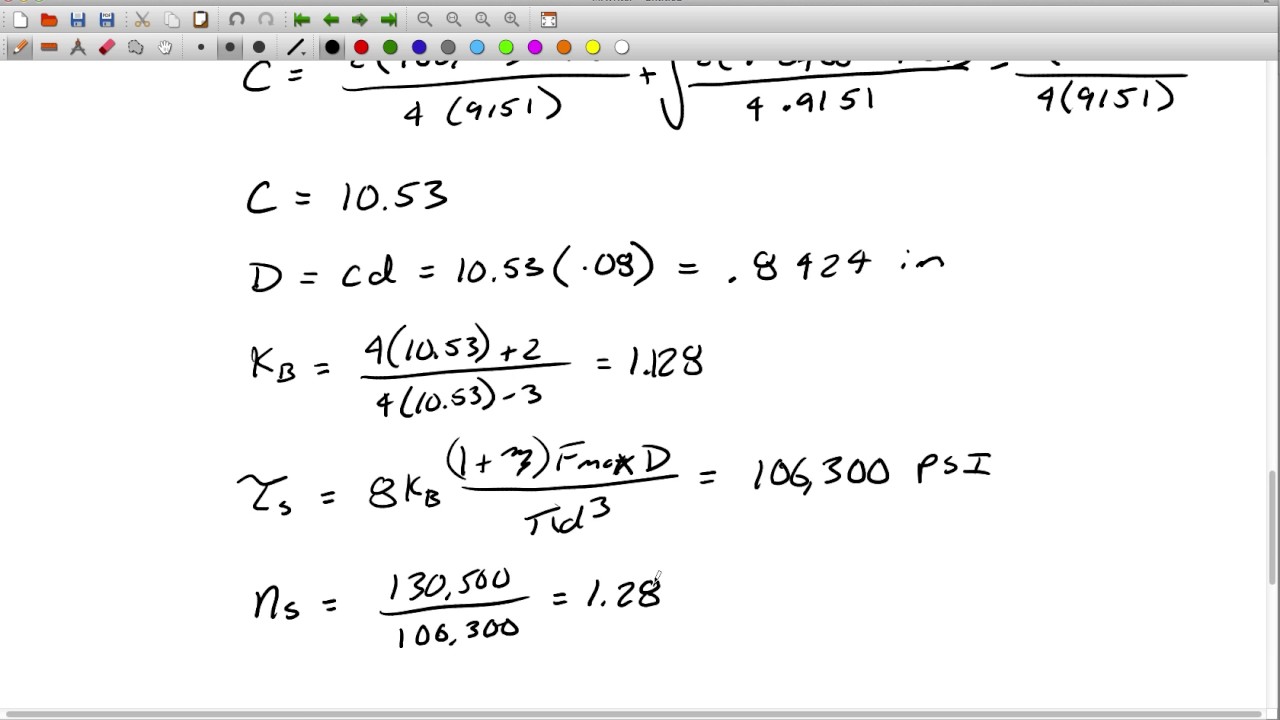 C = 4 (9151) + √ 4 .9151 - 4(9151)
C = 10.53
D = cd = 10.53(.08) = .8424 in
KB = 4(10.53)+2 / 4(10.53)-3 = 1.128
τs = 8KB (1+ξ)Fmax D / πd³ = 106,300 PSI
ns = 130,500 / 106,300 = 1.28